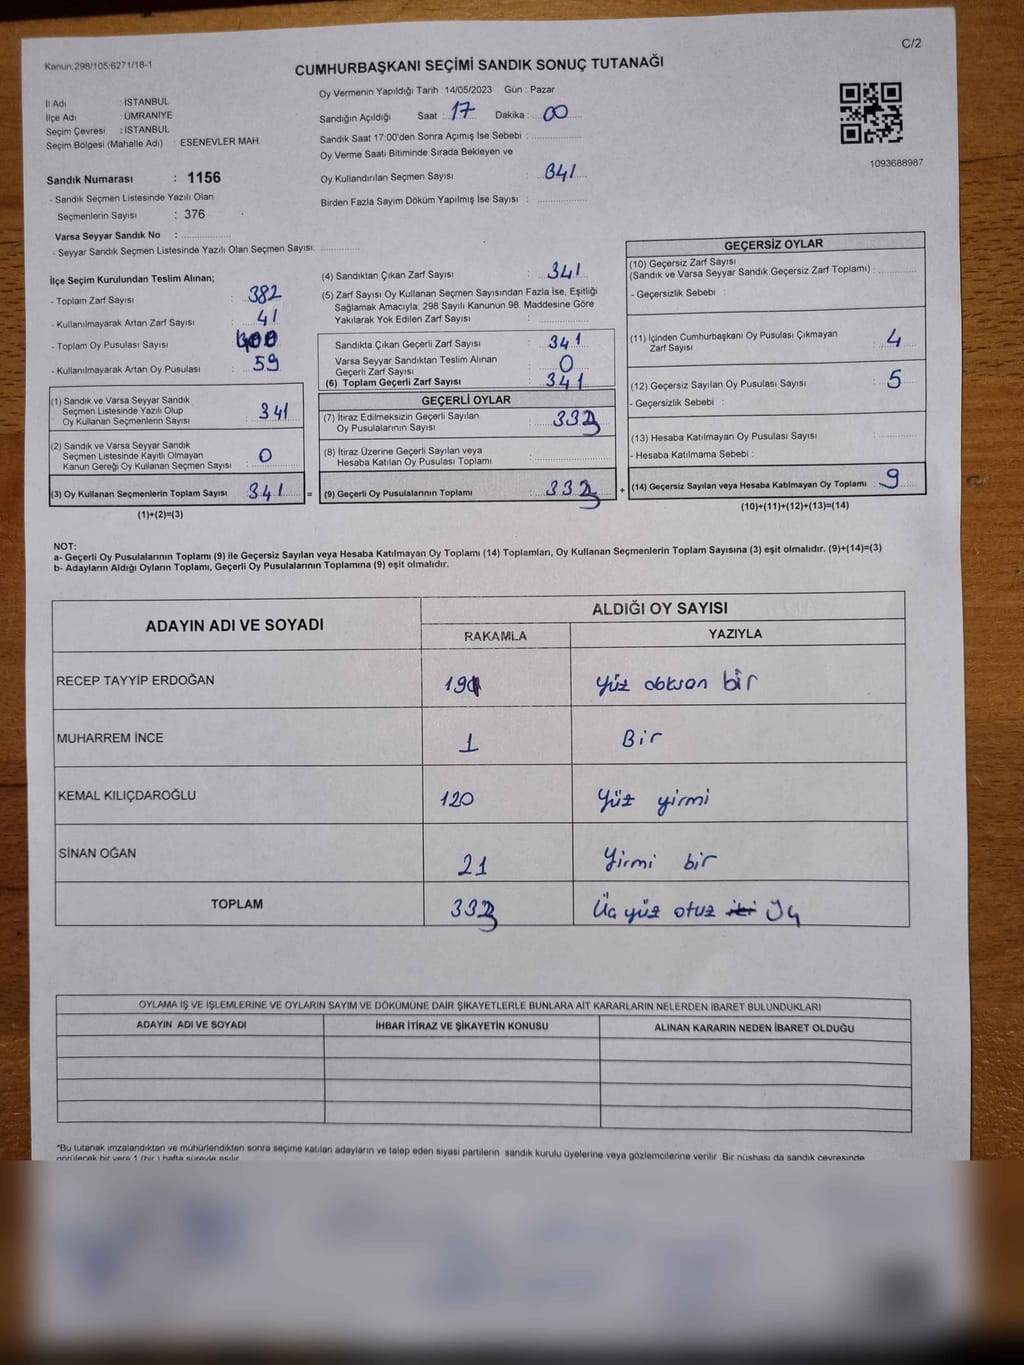 C/2
Kanun:298/105;6271/18-1
CUMHURBAŞKANI SEÇİMİ SANDIK SONUÇ TUTANAĞI
İl Adı : İSTANBUL
İlçe Adı : ÜMRANİYE
Seçim Çevresi : İSTANBUL
Seçim Bölgesi (Mahalle Adı) : ESENEVLER MAH.
Sandık Numarası : 1156
- Sandık Seçmen Listesinde Yazılı Olan
Seçmenlerin Sayısı : 376
Varsa Seyyar Sandık No :
- Seyyar Sandık Seçmen Listesinde Yazılı Olan Seçmen Sayısı:
Oy Vermenin Yapıldığı Tarih : 14/05/2023 Gün : Pazar
Sandığın Açıldığı Saat : 17 Dakika : 00
Sandık Saat 17:00'den Sonra Açımış İse Sebebi :
Oy Verme Saati Bitiminde Sırada Bekleyen ve
Oy Kullandırılan Seçmen Sayısı : 341
Birden Fazla Sayım Döküm Yapılmış İse Sayısı :
1093688987
İlçe Seçim Kurulundan Teslim Alınan;
- Toplam Zarf Sayısı : 382
- Kullanılmayarak Artan Zarf Sayısı : 41
- Toplam Oy Pusulası Sayısı : 400
- Kullanılmayarak Artan Oy Pusulası : 59
(1) Sandık ve Varsa Seyyar Sandık
Seçmen Listesinde Yazılı Olup
Oy Kullanan Seçmenlerin Sayısı : 341
(2) Sandık ve Varsa Seyyar Sandık
Seçmen Listesinde Kayıtlı Olmayan
Kanun Gereği Oy Kullanan Seçmen Sayısı : 0
(3) Oy Kullanan Seçmenlerin Toplam Sayısı : 341 =
(1)+(2)=(3)
(4) Sandıktan Çıkan Zarf Sayısı : 341
(5) Zarf Sayısı Oy Kullanan Seçmen Sayısından Fazla İse, Eşitliği
Sağlamak Amacıyla; 298 Sayılı Kanunun 98. Maddesine Göre
Yakılarak Yok Edilen Zarf Sayısı :
Sandıkta Çıkan Geçerli Zarf Sayısı : 341
Varsa Seyyar Sandıktan Teslim Alınan
Geçerli Zarf Sayısı : 0
(6) Toplam Geçerli Zarf Sayısı : 341
GEÇERLİ OYLAR
(7) İtiraz Edilmeksizin Geçerli Sayılan
Oy Pusulalarının Sayısı : 333
(8) İtiraz Üzerine Geçerli Sayılan veya
Hesaba Katılan Oy Pusulası Toplamı :
(9) Geçerli Oy Pusulalarının Toplamı : 333 +
GEÇERSİZ OYLAR
(10) Geçersiz Zarf Sayısı
(Sandık ve Varsa Seyyar Sandık Geçersiz Zarf Toplamı) :
- Geçersizlik Sebebi :
(11) İçinden Cumhurbaşkanı Oy Pusulası Çıkmayan
Zarf Sayısı : 4
(12) Geçersiz Sayılan Oy Pusulası Sayısı : 5
- Geçersizlik Sebebi :
(13) Hesaba Katılmayan Oy Pusulası Sayısı :
- Hesaba Katılmama Sebebi :
(14) Geçersiz Sayılan veya Hesaba Katılmayan Oy Toplamı : 9
(10)+(11)+(12)+(13)=(14)
NOT:
a- Geçerli Oy Pusulalarının Toplamı (9) ile Geçersiz Sayılan veya Hesaba Katılmayan Oy Toplamı (14) Toplamları, Oy Kullanan Seçmenlerin Toplam Sayısına (3) eşit olmalıdır. (9)+(14)=(3)
b- Adayların Aldığı Oyların Toplamı, Geçerli Oy Pusulalarının Toplamına (9) eşit olmalıdır.
ADAYIN ADI VE SOYADI ALDIĞI OY SAYISI
RAKAMLA YAZIYLA
RECEP TAYYİP ERDOĞAN 191 Yüz doksan bir
MUHARREM İNCE 1 Bir
KEMAL KILIÇDAROĞLU 120 Yüz yirmi
SİNAN OĞAN 21 Yirmi bir
TOPLAM 333 Üç yüz otuz iki Üç
OYLAMA İŞ VE İŞLEMLERİNE VE OYLARIN SAYIM VE DÖKÜMÜNE DAİR ŞİKAYETLERLE BUNLARA AİT KARARLARIN NELERDEN İBARET BULUNDUKLARI
ADAYIN ADI VE SOYADI İHBAR İTİRAZ VE ŞİKAYETİN KONUSU ALINAN KARARIN NEDEN İBARET OLDUĞU
*Bu tutanak imzalandıktan ve mühürlendikten sonra seçime katılan adayların ve talep eden siyasi partilerin sandık kurulu üyelerine veya gözlemcilerine verilir. Bir nüshası da sandık çevresinde
görülecek bir yere 1 (bir) hafta süreyle asılır.